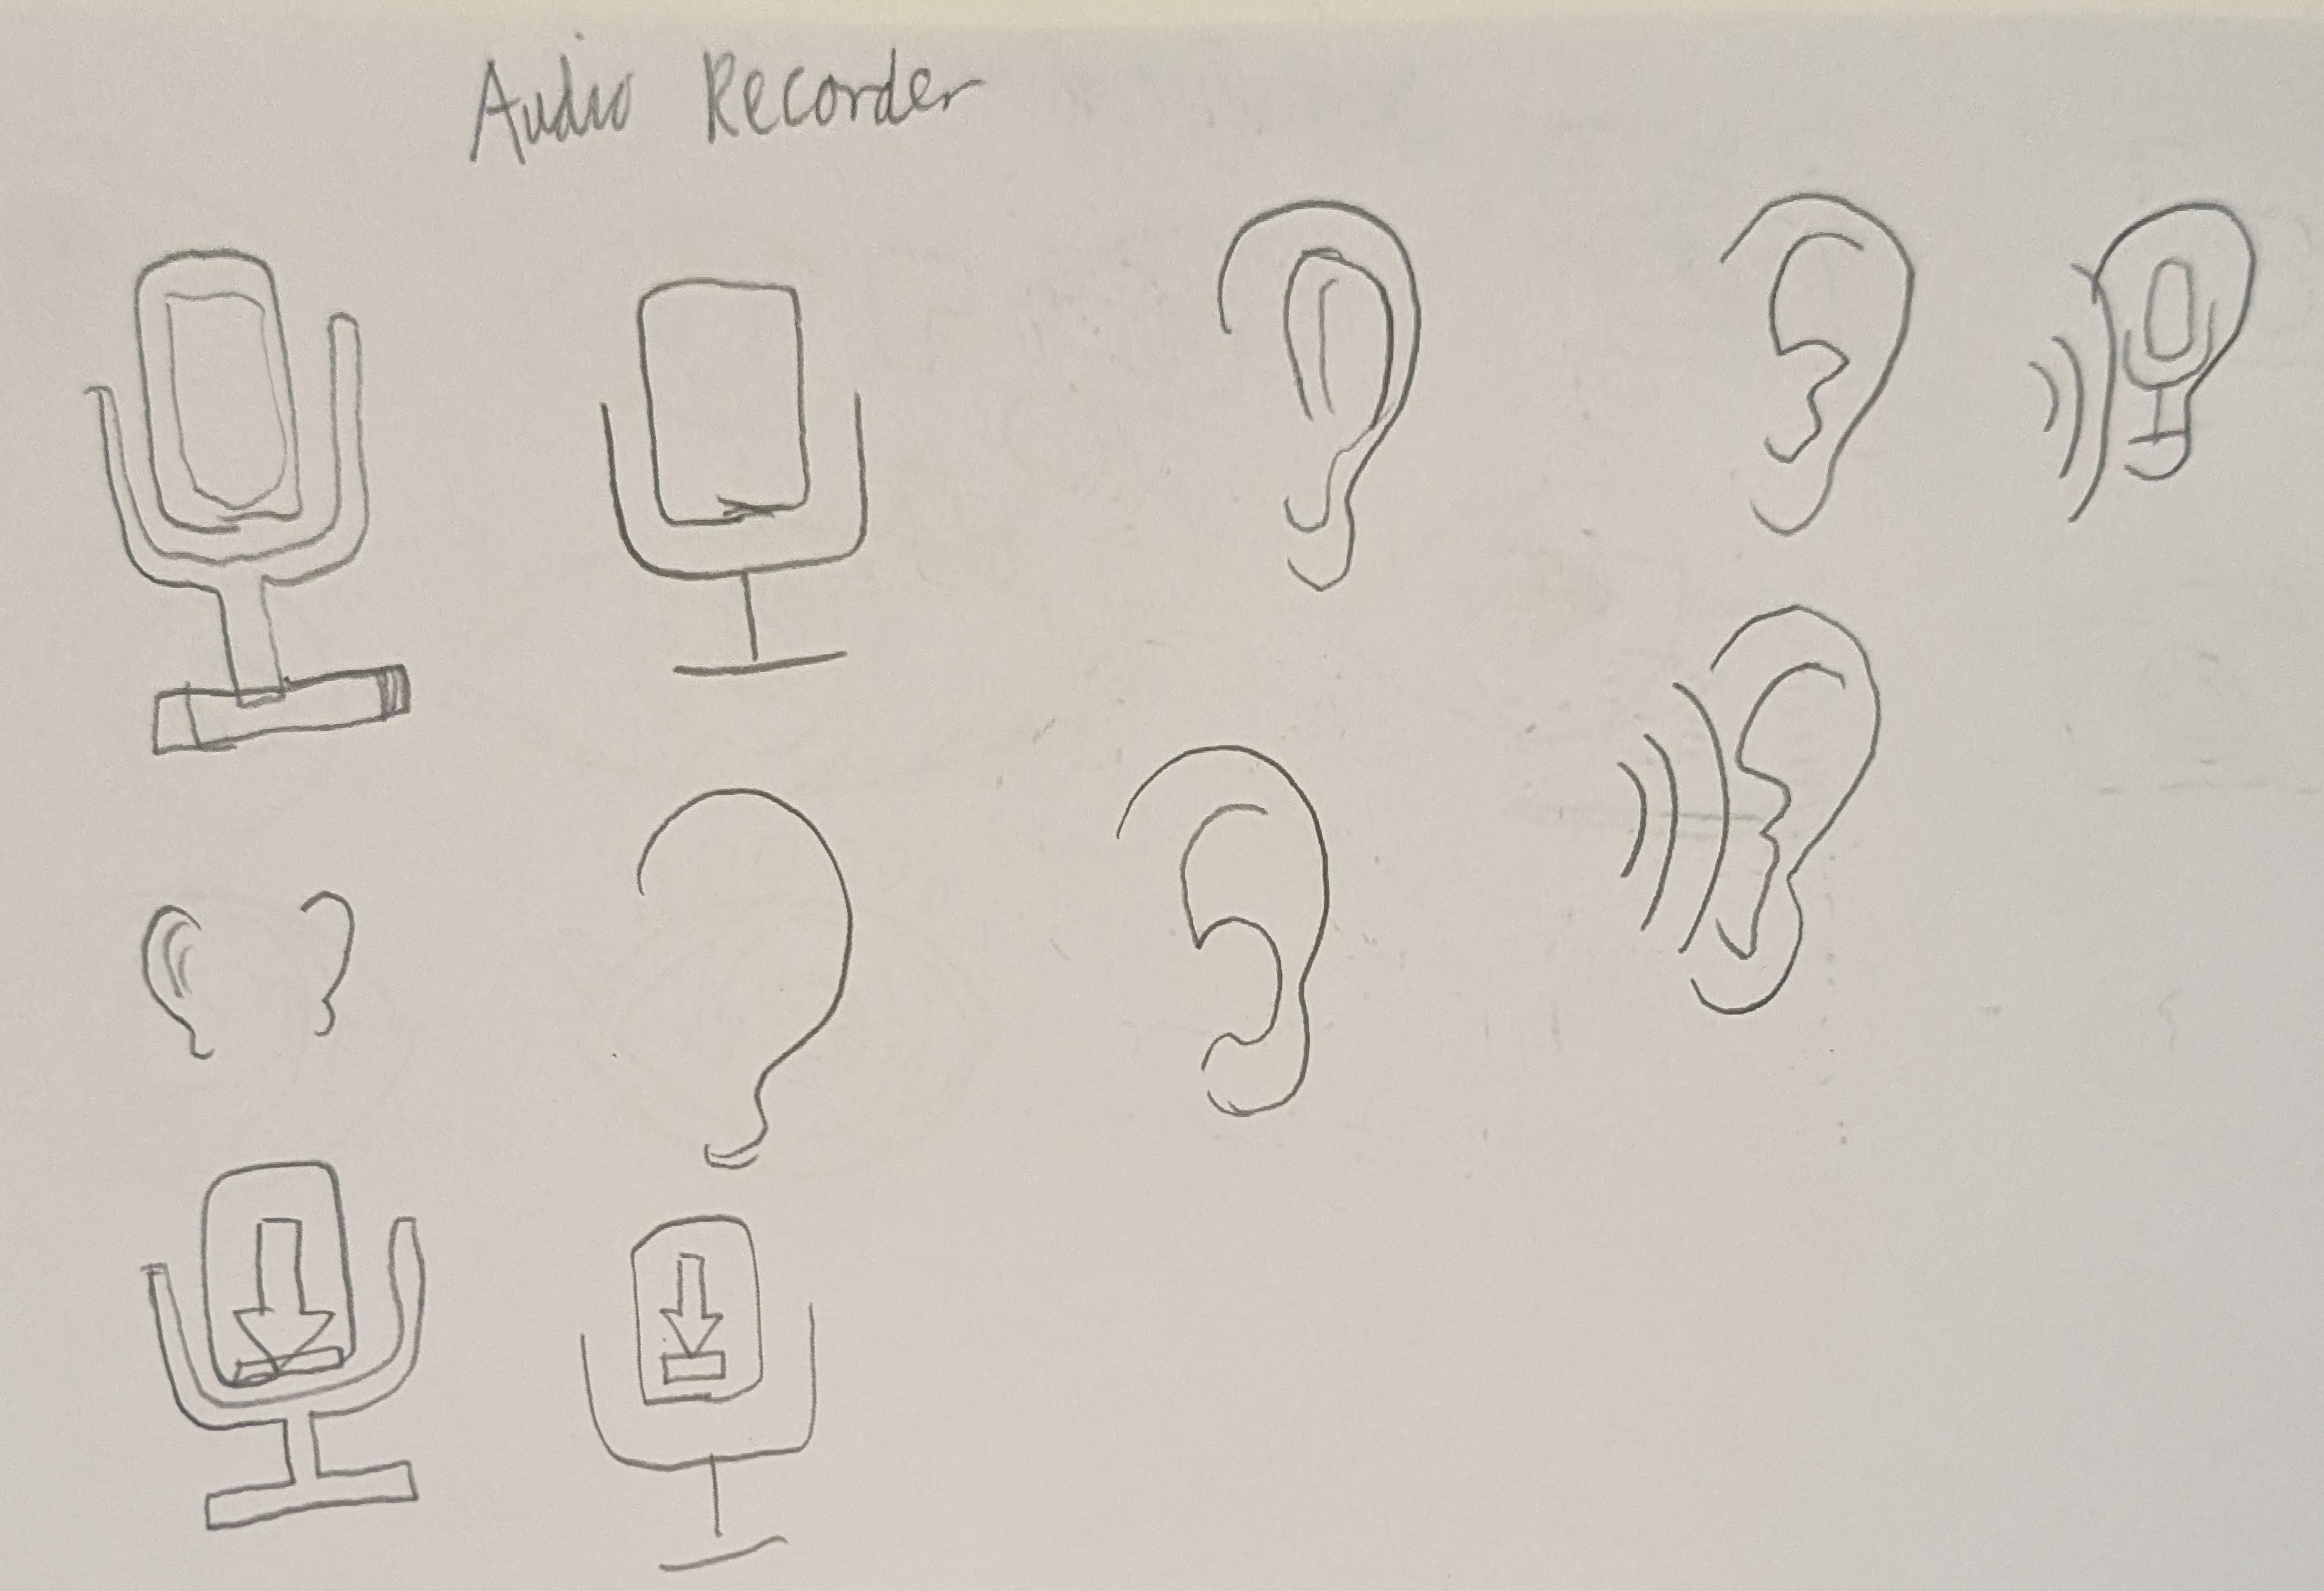 Audio Recorder